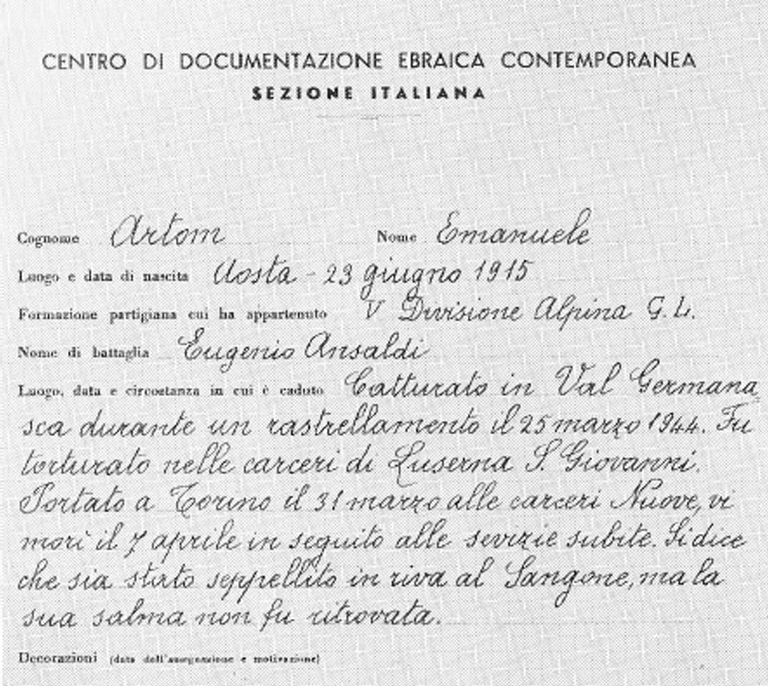 CENTRO DI DOCUMENTAZIONE EBRAICA CONTEMPORANEA
SEZIONE ITALIANA
Cognome Artom Nome Emanuele
Luogo e data di nascita Aosta - 23 giugno 1915
Formazione partigiana cui ha appartenuto V Divisione Alpina G. L.
Nome di battaglia Eugenio Ansaldi
Luogo, data e circostanza in cui è caduto Catturato in Val Germana_
sca durante un rastrellamento il 25 marzo 1944. Fu
torturato nelle carceri di Luserna S. Giovanni.
Portato a Torino il 31 marzo alle carceri Nuove, vi
morì il 7 aprile in seguito alle sevizie subite. Si dice
che sia stato seppellito in riva al Sangone, ma la
sua salma non fu ritrovata.
Decorazioni (data dell'assegnazione e motivazione)